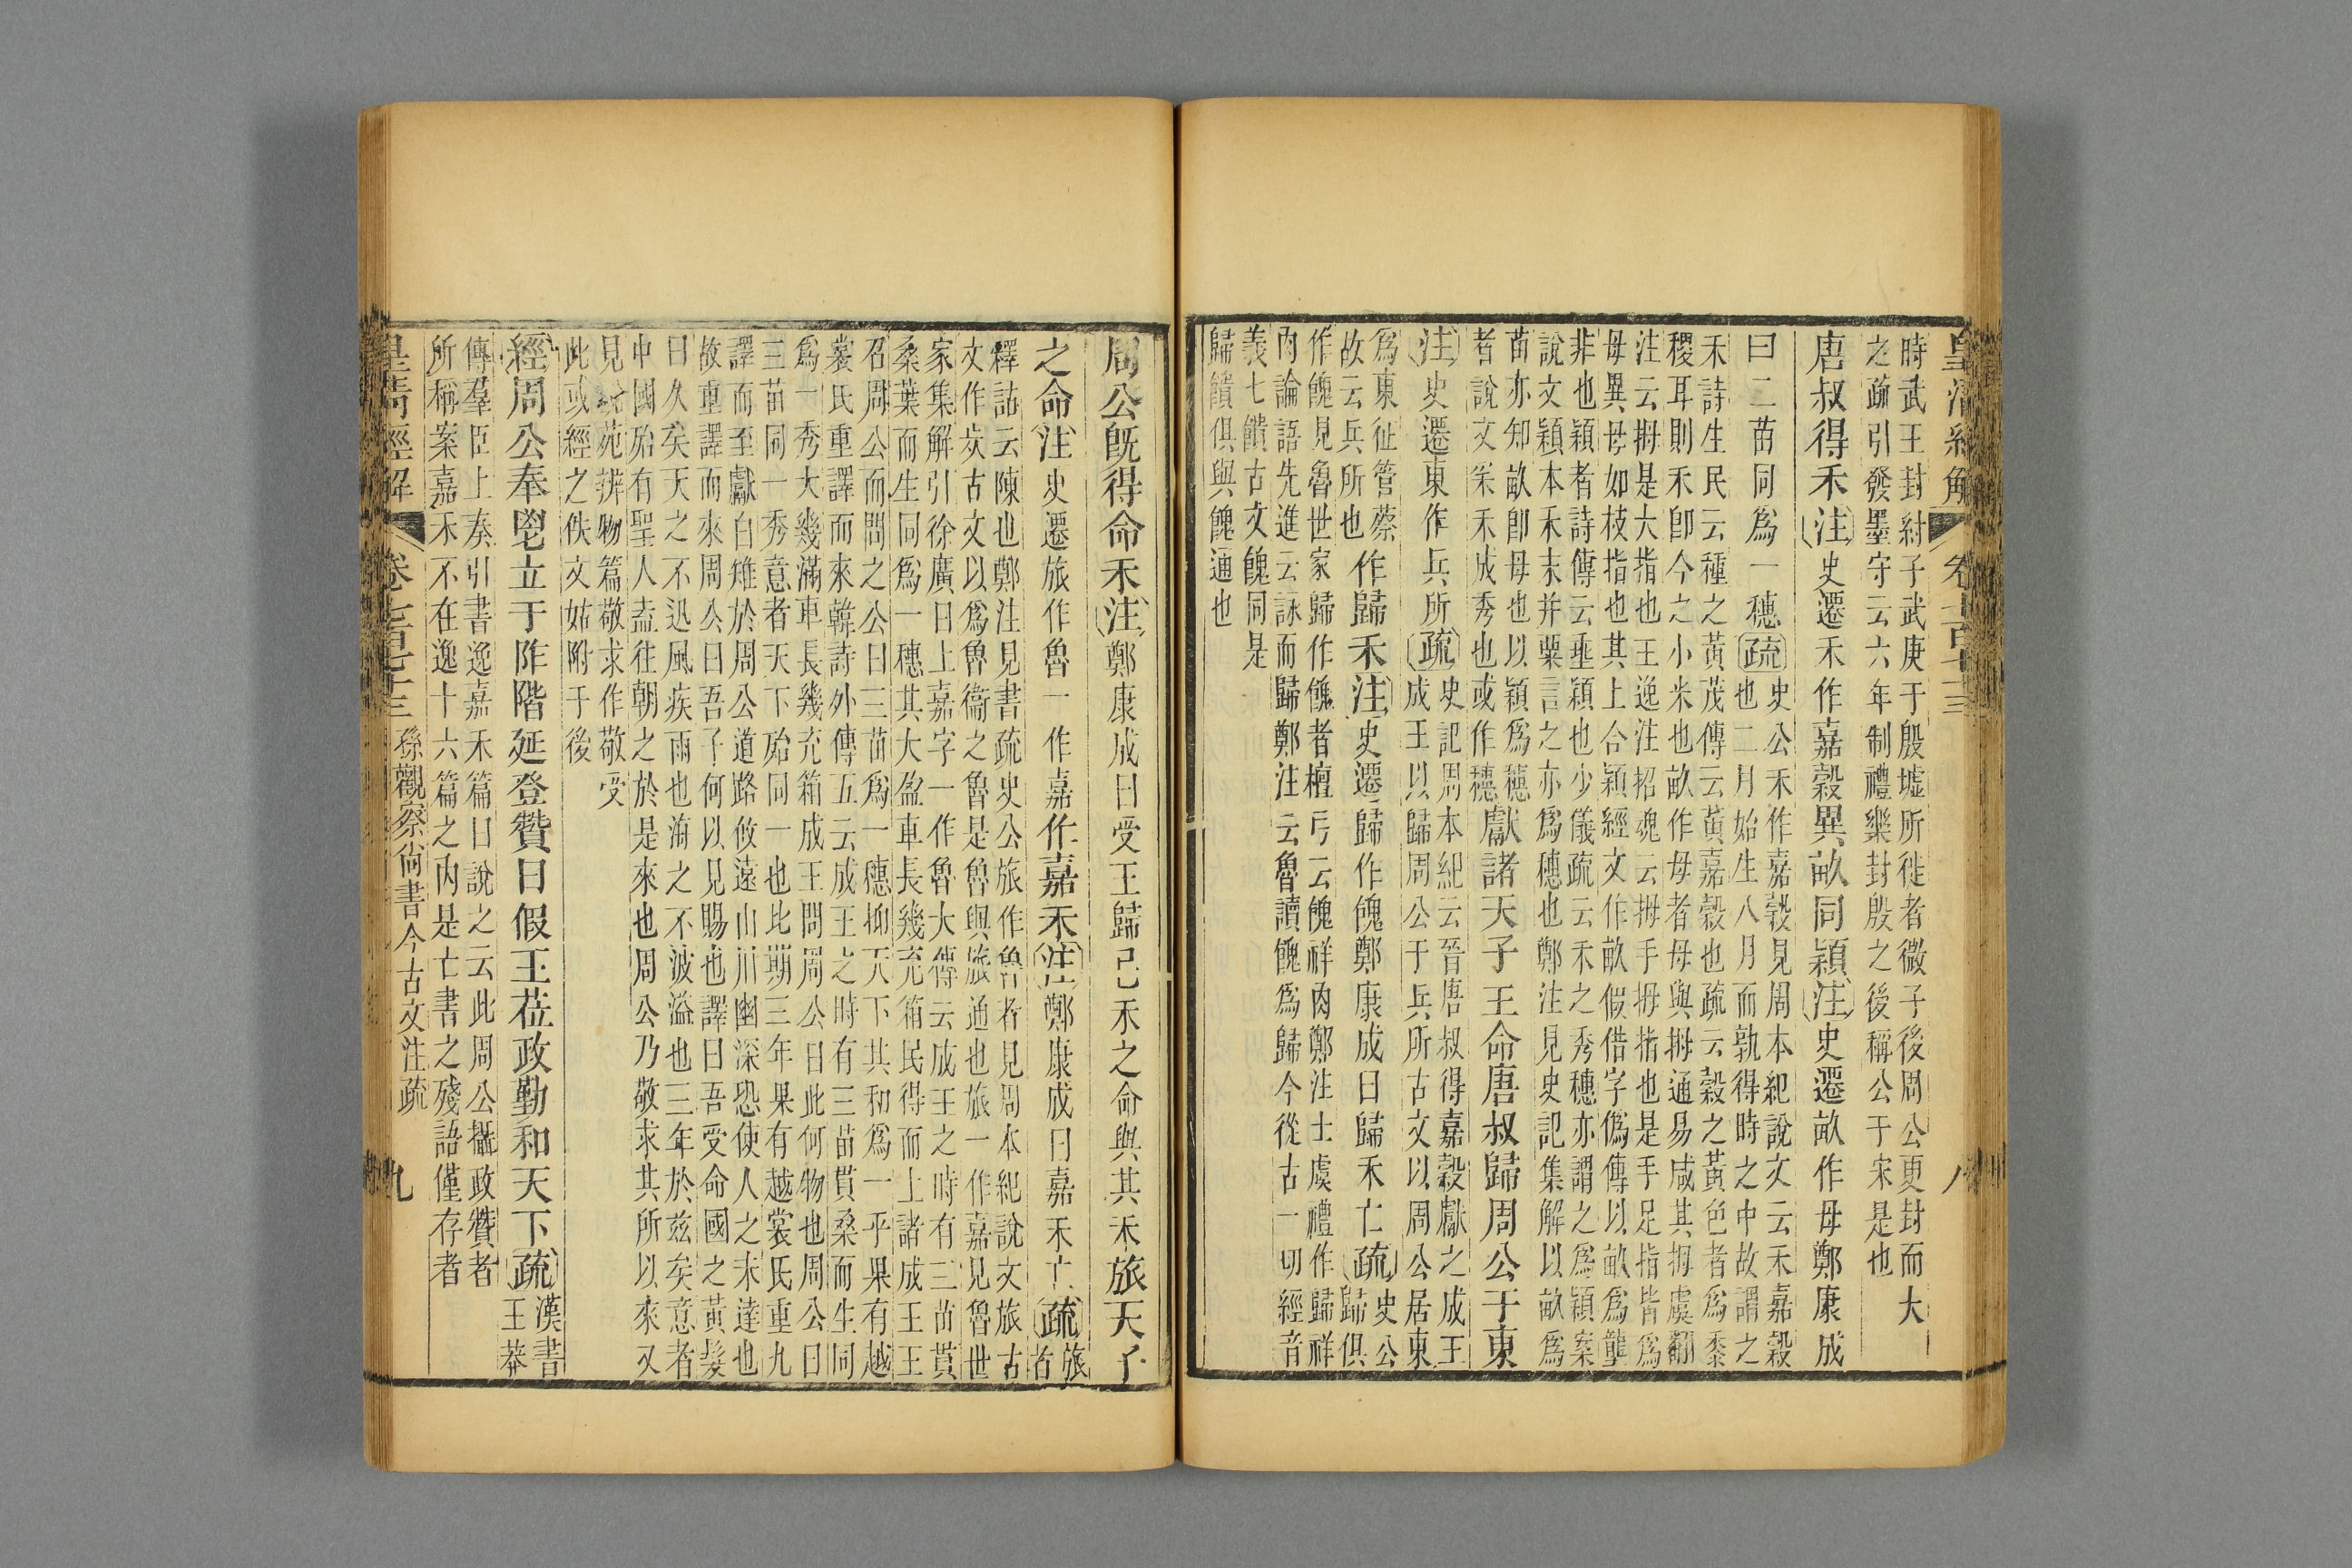 皇清經解 卷七百七十三 八
時武王封紂子武庚于殷墟所徙者微子後周公更封而大
之疏引發墨守云六年制禮樂封殷之後稱公于宋是也
唐叔得禾注史遷禾作嘉穀異畝同穎注史遷畝作母鄭康成
曰二苗同爲一穗疏史公禾作嘉穀見周本紀說文云禾嘉穀
也二月始生八月而孰得時之中故謂之
禾詩生民云種之黃茂傳云黃嘉穀也疏云穀之黃色者爲黍
稷耳則禾卽今之小米也畝作母者母與拇通易咸其拇虞翻
注云拇是大指也王逸注招魂云拇手拇指也是手足指皆爲
母異母如枝指也其上合穎經文作畝假借字僞傳以畝爲壟
非也穎者詩傳云垂穎也少儀疏云禾之秀穗亦謂之爲穎案
說文穎本禾末并粟言之亦爲穗也鄭注見史記集解以畝爲
苗亦知畝卽母也以穎爲穗
者說文采禾成秀也或作穗獻諸天子王命唐叔歸周公于東
注史遷東作兵所疏史記周本紀云晉唐叔得嘉穀獻之成王
成王以歸周公于兵所古文以周公居東
爲東征管蔡
故云兵所也作歸禾注史遷歸作餽鄭康成曰歸禾亡疏史公
歸俱
作餽見魯世家歸作餽者檀弓云餽祥肉鄭注士虞禮作歸祥
肉論語先進云詠而歸鄭注云魯讀餽爲歸今從古一切經音
義七饋古文餽同是
歸饋俱與餽通也
周公旣得命禾注鄭康成曰受王歸已禾之命與其禾旅天子
之命注史遷旅作魯一作嘉作嘉禾注鄭康成曰嘉禾亡疏旅
首
釋詁云陳也鄭注見書疏史公旅作魯者見周本紀說文旅古
文作㫃古文以爲魯衞之魯是魯與旅通也旅一作嘉見魯世
家集解引徐廣曰上嘉字一作魯大傳云成王之時有三苗貫
桑葉而生同爲一穗其大盈車長幾充箱民得而上諸成王王
召周公而問之公曰三苗爲一穗抑天下其和爲一乎果有越
裳氏重譯而來韓詩外傳五云成王之時有三苗貫桑而生同
爲一秀大幾滿車長幾充箱成王問周公曰此何物也周公曰
三苗同一秀意者天下殆同一也比期三年果有越裳氏重九
譯而至獻白雉於周公道路攸遠山川幽深恐使人之未達也
故重譯而來周公曰吾子何以見賜也譯曰吾受命國之黃髮
曰久矣天之不迅風疾雨也海之不波溢也三年於茲矣意者
中國殆有聖人盍往朝之於是來也周公乃敬求其所以來又
見說苑辨物篇敬求作敬受
此或經之佚文姑附于後
經周公奉鬯立于阼階延登贊曰假王莅政勤和天下疏漢書
王莽
傳羣臣上奏引書逸嘉禾篇曰說之云此周公攝政贊者
所稱案嘉禾不在逸十六篇之內是亡書之殘語僅存者
皇清經解 卷七百七十三 孫觀察尙書今古文注疏 九